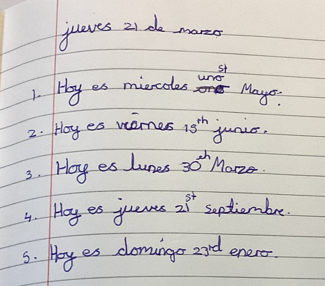 jueves 21 de marzo
1. Hoy es miercoles uno st Mayo.
2. Hoy es viernes 15th junio.
3. Hoy es lunes 30th Marzo.
4. Hoy es jueves 21st septiembre.
5. Hoy es domingo 23rd enero.